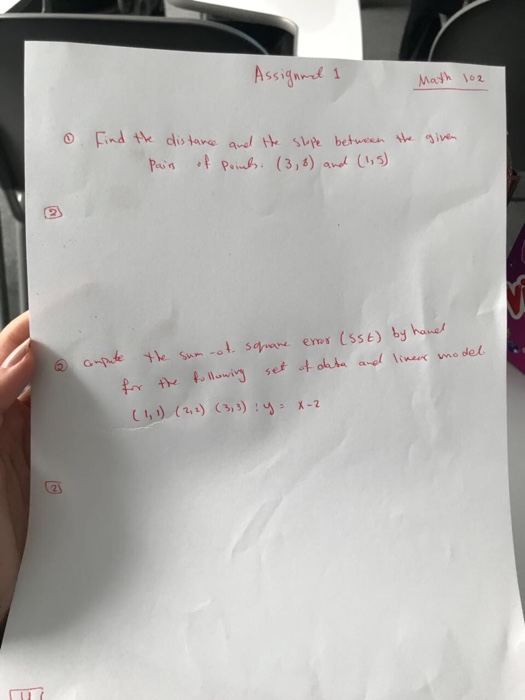 Assignmet 1
Math 102
① Find the distance and the slope between the given
Pairs of Points. (3,8) and (1,5)
2
② compute the sum-of-square error (SSE) by hand
for the following set of data and linear model.
(1,1) (2,2) (3,3) : y = x-2
2